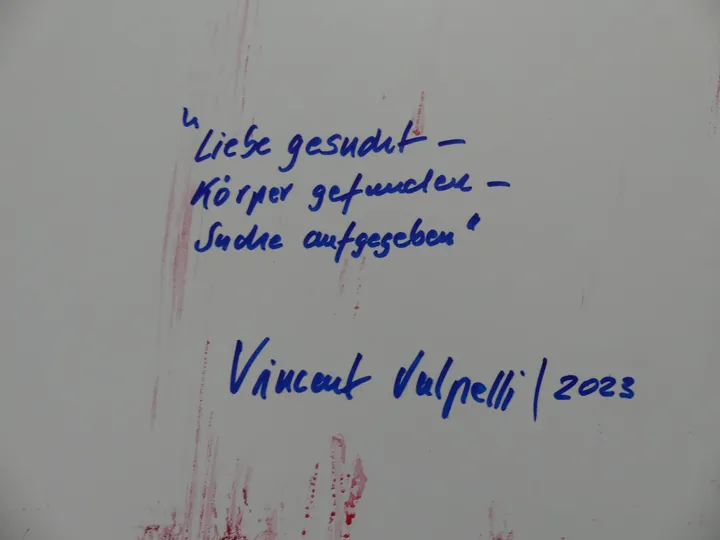 "Liebe gesucht –
Körper gefunden –
Suche aufgegeben"
Vincent Vulpelli / 2023